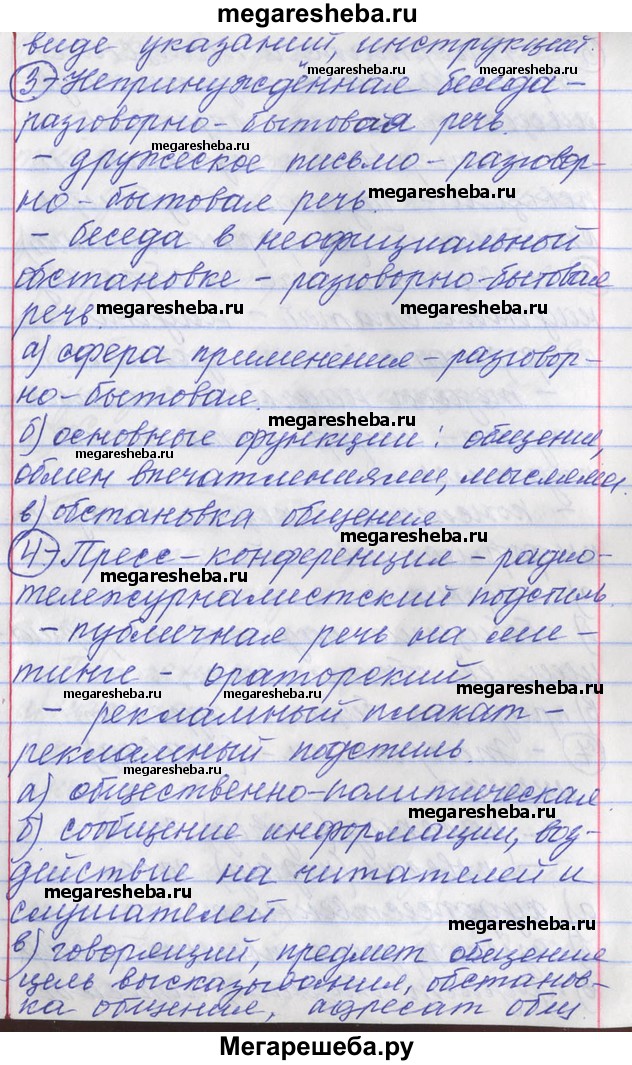 megaresheba.ru
виде указаний, инструкций.
megaresheba.ru
3) - Непринуждённая беседа -
megaresheba.ru
разговорно-бытовая речь.
megaresheba.ru
- дружеское письмо - разговор-
megaresheba.ru
но-бытовая речь.
- беседа в неофициальный
обстановке - разговорно-бытовая
речь.
megaresheba.ru megaresheba.ru
а) сфера применения - разговор-
но-бытовая.
megaresheba.ru
б) основные функции: общения,
megaresheba.ru
обмен впечатлениями, мыслями.
в) обстановка общения
megaresheba.ru
4) - Пресс-конференция - радио-
megaresheba.ru
тележурналистский подстиль.
- публичная речь на ми-
megaresheba.ru
тинге - ораторский
megaresheba.ru megaresheba.ru megaresheba.ru
- рекламный плакат -
рекламный подстиль.
megaresheba.ru
а) общественно-политическая
megaresheba.ru
б) сообщение информации, воз-
действие на читателей и
megaresheba.ru
слушателей
megaresheba.ru
в) говорящий, предмет общения
megaresheba.ru
цель высказывания, обстанов-
ка общения, адресат общ.
Мегарешеба.ру